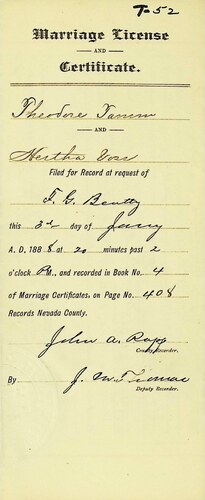 T-52
Marriage License
AND
Certificate.
Theodore Tamm
AND
Hertha Vose
Filed for Record at request of
F. G. Beatty
this 3rd day of Jany
A. D. 1888 at 20 minutes past 2
o'clock P.M., and recorded in Book No. 4
of Marriage Certificates, on Page No. 408
Records Nevada County.
John A. Rapp
County Recorder.
By J. M. Thomas
Deputy Recorder.